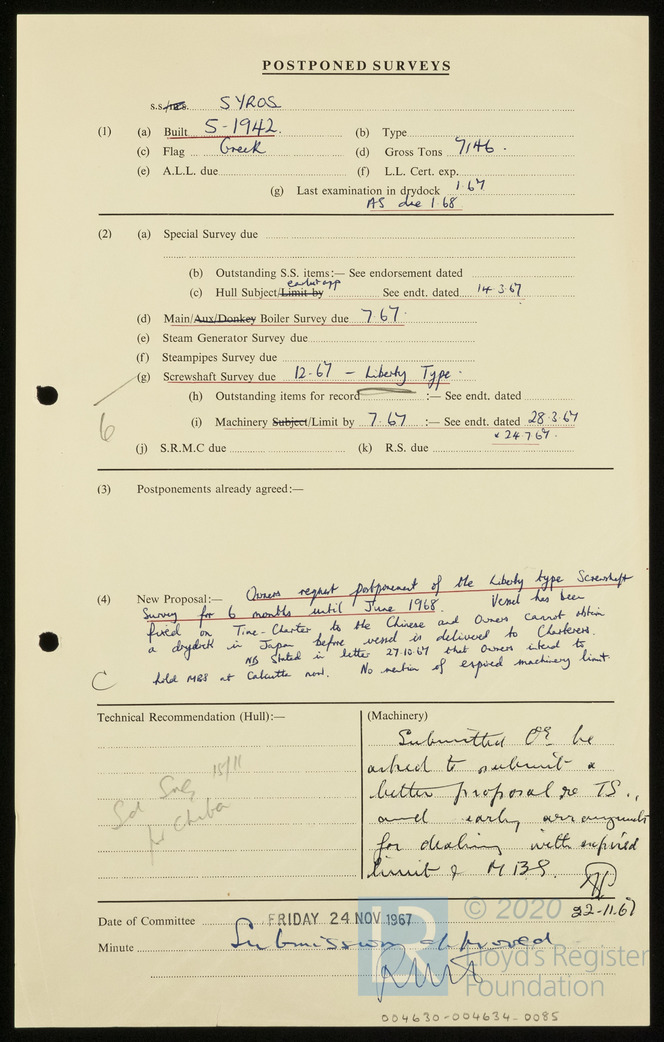 POSTPONED SURVEYS
s.s./m.s. SYROS
(1) (a) Built 5-1942. (b) Type
(c) Flag Greek (d) Gross Tons 7146.
(e) A.L.L. due (f) L.L. Cert. exp.
(g) Last examination in drydock 1.67
AS due 1.68
(2) (a) Special Survey due
(b) Outstanding S.S. items:— See endorsement dated
earliest opp
(c) Hull Subject/Limit by See endt. dated 14.3.67
(d) Main/Aux/Donkey Boiler Survey due 7.67.
(e) Steam Generator Survey due
(f) Steampipes Survey due
(g) Screwshaft Survey due 12.67 – Liberty Type.
(h) Outstanding items for record :— See endt. dated
6
(i) Machinery Subject/Limit by 7.67 :— See endt. dated 28.3.67
& 24.7.67.
(j) S.R.M.C due (k) R.S. due
(3) Postponements already agreed:—
(4) New Proposal:— Owners request postponement of the Liberty type Screwshaft
Survey for 6 months until June 1968. Vessel has been
fixed on Time-Charter to the Chinese and Owners cannot obtain
a drydock in Japan before vessel is delivered to Charterers.
NB Stated in letter 27.10.67 that Owners intend to
hold MBS at Calcutta now. No mention of expired machinery limit.
C
Technical Recommendation (Hull):— (Machinery)
Submitted Os. be
asked to submit a
better proposal re TS.,
and early arrangements
for dealing with expired
limit & MBS.
15/11
for Chiba
22-11.67
Date of Committee FRIDAY 24 NOV 1967
Minute Submission approved
© 2020
Lloyd's Register
Foundation
LR
004630-004634-0085